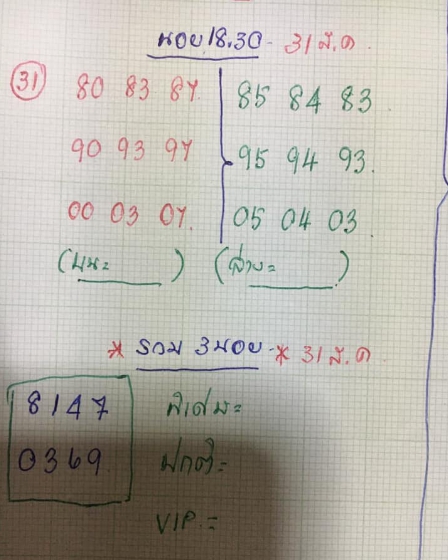 ฮานอย 18.30 - 31 ส.ค
31 80 83 87 85 84 83
90 93 97 95 94 93
00 03 07 05 04 03
(บน= ) (ล่าง= )
* รวม 3 นอย - * 31 ส.ค
8147 พิเศษ=
0369 ปกติ=
VIP =